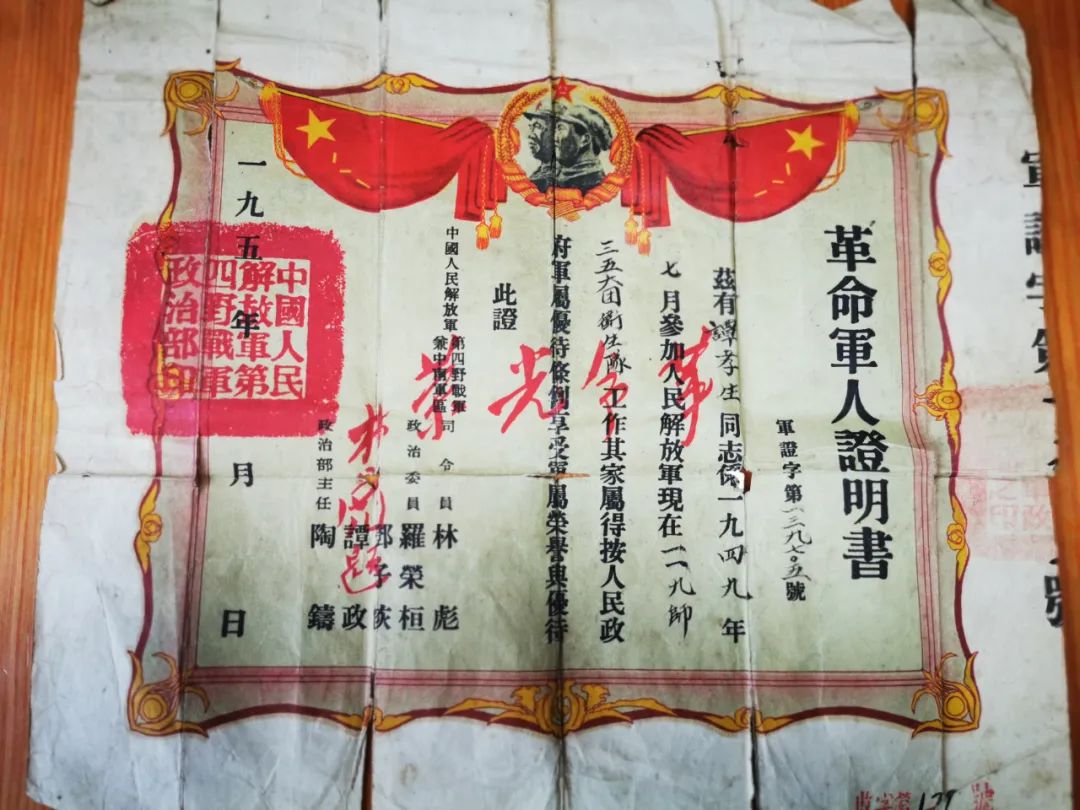 革命軍人證明書
軍證字第一三九七〇五號
茲有譚孝生同志係一九四九年
七月參加人民解放軍現在一一九師
三五六团衛生隊工作其家屬得按人民政
府軍屬優待條例享受軍屬榮譽與優待
此證
中國人民解放軍第四野戰軍兼中南軍區司令員 林彪
政治委員 羅榮桓
鄧子恢
譚政
政治部主任 陶鑄
一九五 年 月 日
中國人民
解放軍第
四野戰軍
政治部印
光荣